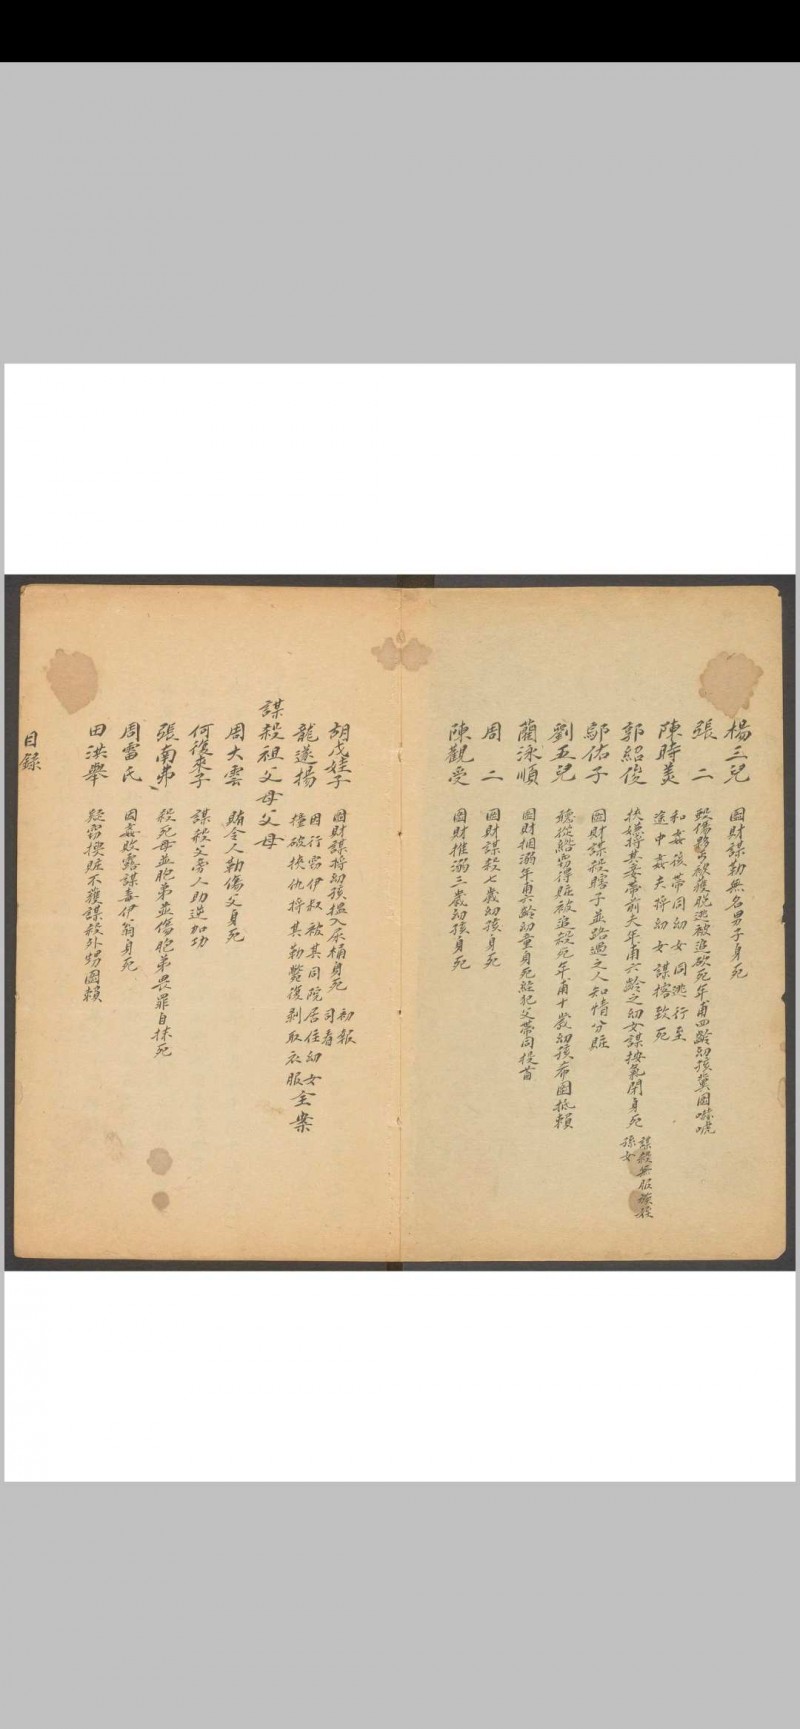 楊三兒 圖財謀勒無名男子身死
張二 毆傷 被獲脫逃被追砍死年甫四齡幼孩冀圖嚇唬
陳時美 和姦後帶同幼女同逃行至途中姦夫將幼女謀搭致死
郭紹俊 挾嫌將其妾帶前夫年甫六齡之幼女謀按氣閉身死 謀殺無服族姪孫女
鄔佑子 圖財謀殺瞎子並路過之人知情分賍
劉五兒 聽從綹竊得賍被追殺死年甫十歲幼孩希圖抵賴
藺泳順 圖財溺年甫六齡幼童身死經犯父帶同投首
周二 圖財謀殺七歲幼孩身死
陳觀受 圖財推溺三歲幼孩身死
胡戊娃子 圖財謀將幼孩揾入尿桶身死
龍遂揚 因行竊伊叔被其同院居住幼女撞破挾仇將其勒斃復剝取衣服全案 初報司看
謀殺祖父母父母
周大雲 賄令人勒傷父身死
何復來子 謀殺父旁人助逆加功
張南弗 殺死母並胞弟並傷胞弟畏罪自抹死
周雷氏 因姦敗露謀毒伊翁身死
田洪舉 疑竊搜賍不獲謀殺外甥圖賴
目錄